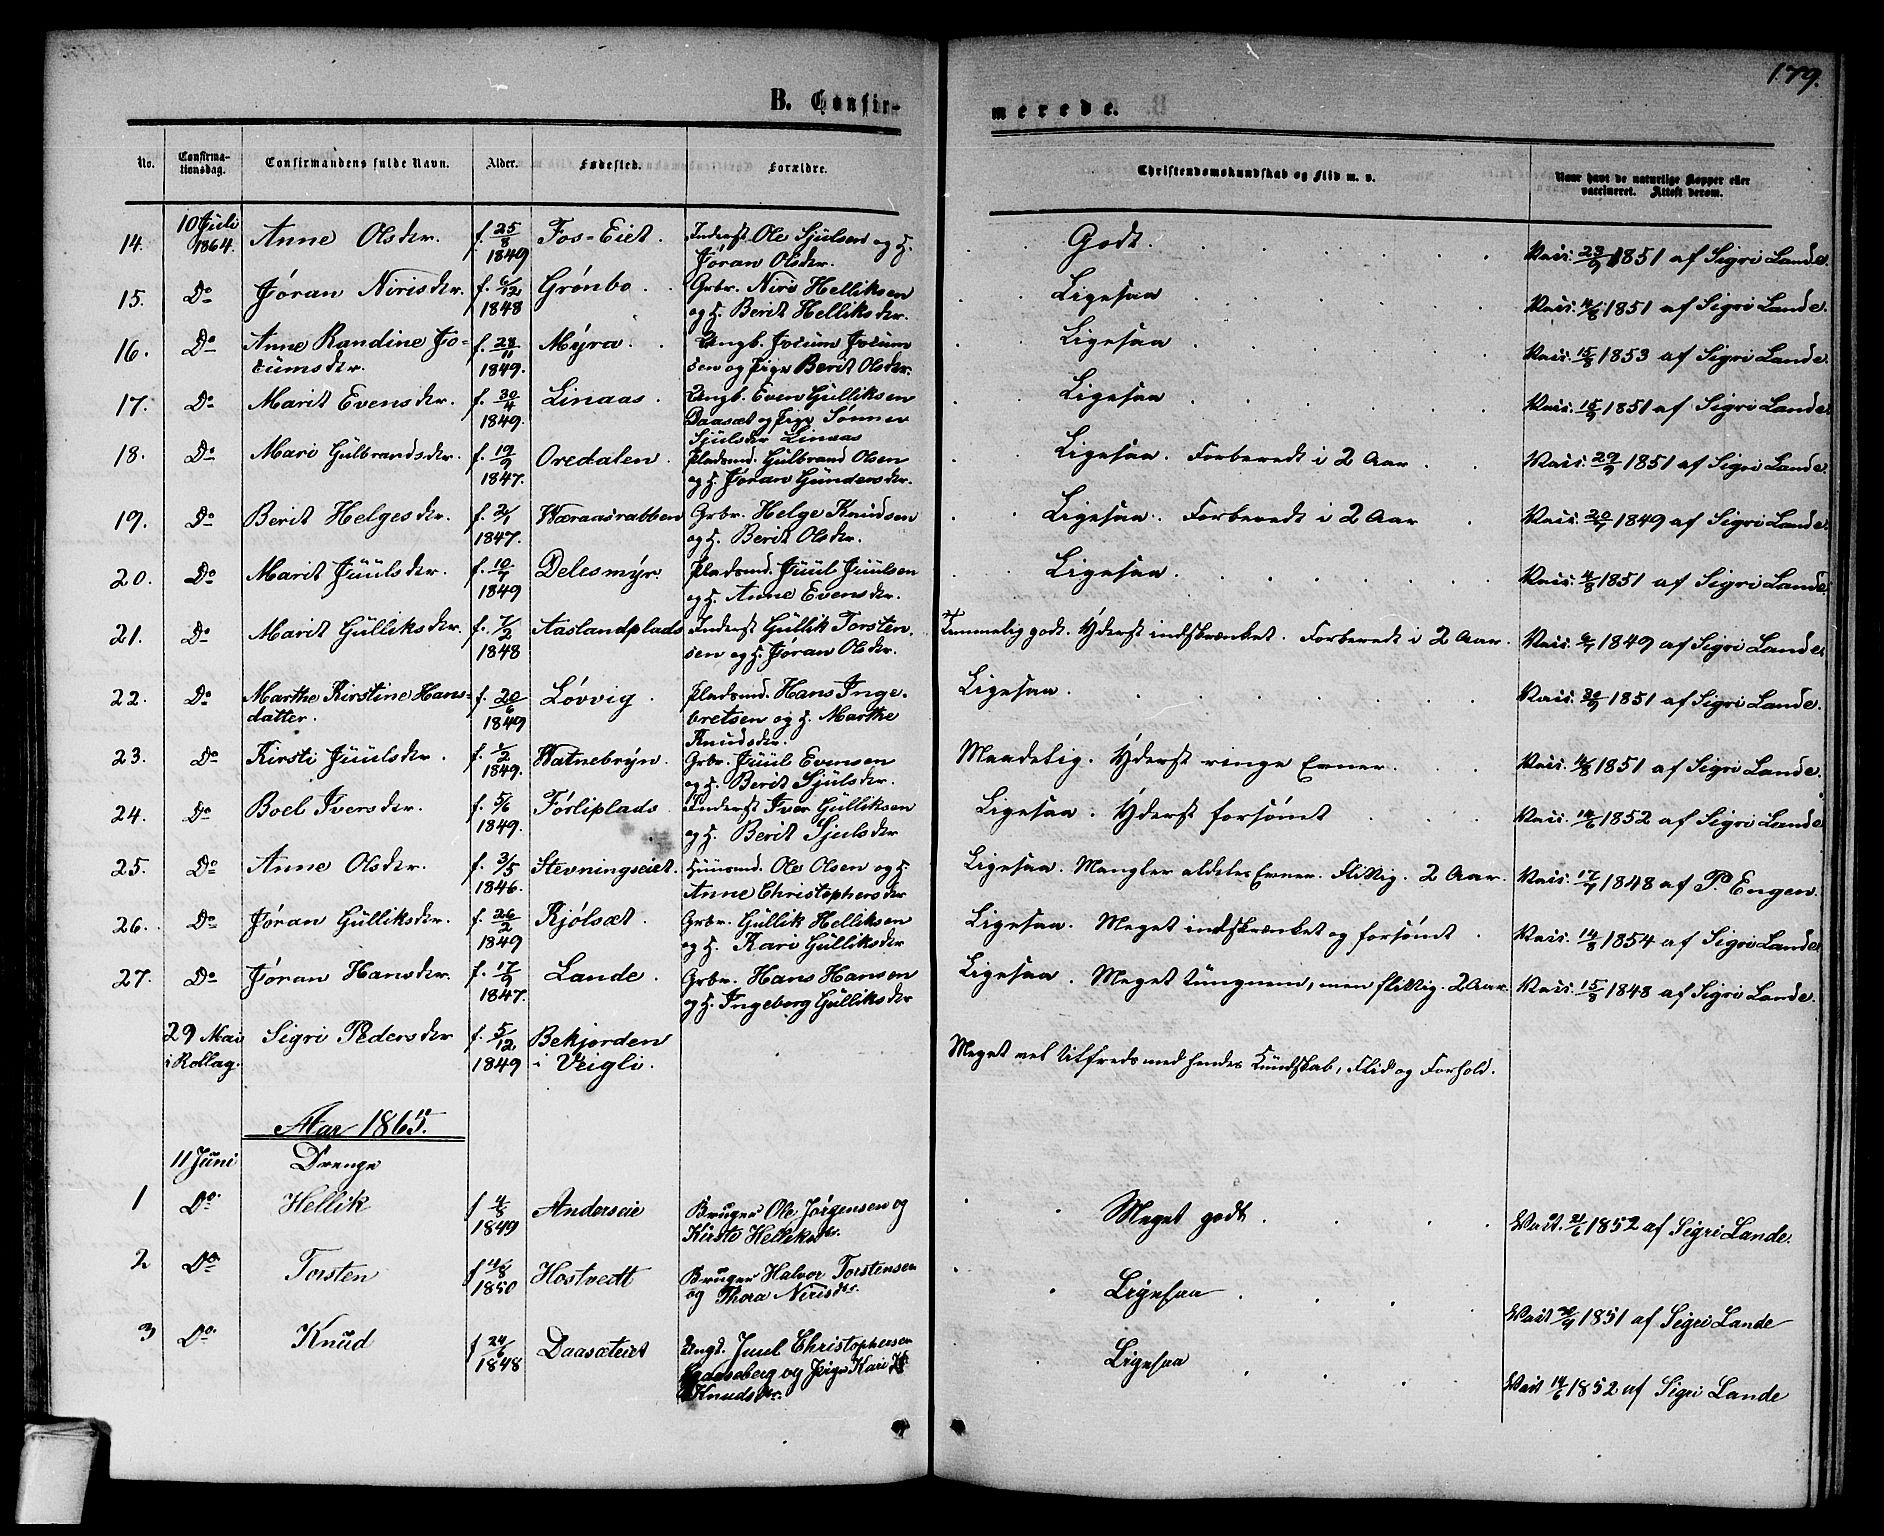 179.
B. Confir-
merede.
No. Confirma-tionsdag. Confirmandens fulde Navn. Alder. Fødested. Forældre. Christendomskundskab og Flid m. v. Naar havt de naturlige Kopper eller vaccineret. Attest derom.
14. 10 Juli 1864. Anne Olsdtr. f. 25/8 1849 Fos-Eiet. Inderst Ole Sjulsen og H. Jøran Olsdtr. Godt. Vacc. 23/9 1851 af Sigri Lande.
15. Do Jøran Nirisdtr. f. 6/12 1848 Grønbo. Grbr. Niri Helliksen og H. Berit Helliksdtr. Ligesaa Vacc. 4/8 1851 af Sigri Lande.
16. Do Anne Randine Jo-cumsdtr. f. 28/11 1849. Myra. Ungk. Jocum Jocum sen og Pige Berit Olsdtr. Ligesaa Vacc. 15/8 1853 af Sigri Lande.
17. Do Marit Evensdtr. f. 30/4 1849. Linaas. Ungk. Even Gulliksen Daasæt og Pige Sønnev Sjulsdtr Linaas Ligesaa Vacc. 15/9 1851 af Sigri Lande
18. Do Mari Gulbrandsdtr. f. 19/9 1847. Oredalen. Pladsmd. Gulbrand Olsen og H. Jøran Gundersdtr. Ligesaa. Forberedt i 2 Aar. Vacc. 29/9 1851 af Sigri Lande.
19. Do Berit Helgesdtr. f. 2/1 1847. Wæraasrabben Grbr. Helge Knudsen og H. Berit Olsdtr. Ligesaa. Forberedt i 2 Aar Vacc. 20/7 1849 af Sigri Lande
20. Do Marit Juulsdtr. f. 10/7 1849 Delesmyr. Pladsmd. Juul Juulsen og H. Anne Evensdtr. Ligesaa. Vacc. 4/8 1851 af Sigri Lande
21. Do Marit Gulliksdtr. f. 7/2 1848 Aaslandplads Inderst Gullik Torsten. sen og H. Jøran Olsdtr. Temmelig godt. Yderst indskrænket. Forberedt i 2 Aar. Vacc. 6/7 1849 af Sigri Lande
22. Do Marthe Kirstine Hans-datter. f. 20/6 1849 Løvvig. Pladsmd. Hans Inge. bretsen og H. Marthe Knudsdtr. Ligesaa. Vacc. 30/9 1851 af Sigri Lande.
23. Do Kirsti Juulsdtr. f. 1/2 1849. Watnebryn. Grbr. Juul Evensen og H. Berit Sjulsdtr. Maadelig. Yderst ringe Evner. Vacc. 16/8 1851 af Sigri Lande.
24. Do Boel Iversdtr. f. 5/6 1849. Førliplads. Inderst Iver Gulliksen og H. Berit Sjulsdtr Ligesaa. Yderst forsømt Vacc. 14/6 1852 af Sigri Lande
25. Do Anne Olsdtr. f. 3/5 1846. Stevningseiet. Huusmd. Ole Olsen og H. Anne Christophersdtr Ligesaa. Mangler aldeles Evner. Flittig. 2 Aar. Vacc. 17/7 1848 af P. Engen.
26. Do Jøran Gulliksdtr. f. 26/2 1849 Kjølsæt. Grbr. Gullik Helliksen og H. Kari Gulliksdtr Ligesaa. Meget indskrænket og forsømt. Vacc. 14/8 1854 af Sigri Lande
27. Do Jøran Hansdtr. f. 17/9 1847. Lande. Grbr. Hans Hansen og H. Ingeborg Gulliksdtr Ligesaa. Meget tungnem, men flittig. 2 Aar. Vacc. 15/8 1848 af Sigri Lande.
29 Mai i Rollag. Sigri Pedersdtr f. 5/12 1849 Bekjorden i Veigli. Meget vel tilfreds med hendes Kundskab, Flid og Forhold.
Aar 1865.
11 Juni Drenge
1 Do. Hellik f 4/8 1849 Anderseie Bruger Ole Jørgensen og Kirsti Helliksdtr. Meget godt. Vact. 21/6 1852 af Sigri Lande.
2 Do Torsten f 11/8 1850 Hostvedt Bruger Halvor Torstensen og Thora Nirisdtr. Ligesaa. Vact 30/9 1851 af Sigri Lande
3 Do. Knud f 24/6 1848 Daasæteiet Ungk. Juul Christophersen og Pige Kari Knudsdtr. Ligesaa Vact 14/6 1852 af Sigri Lande